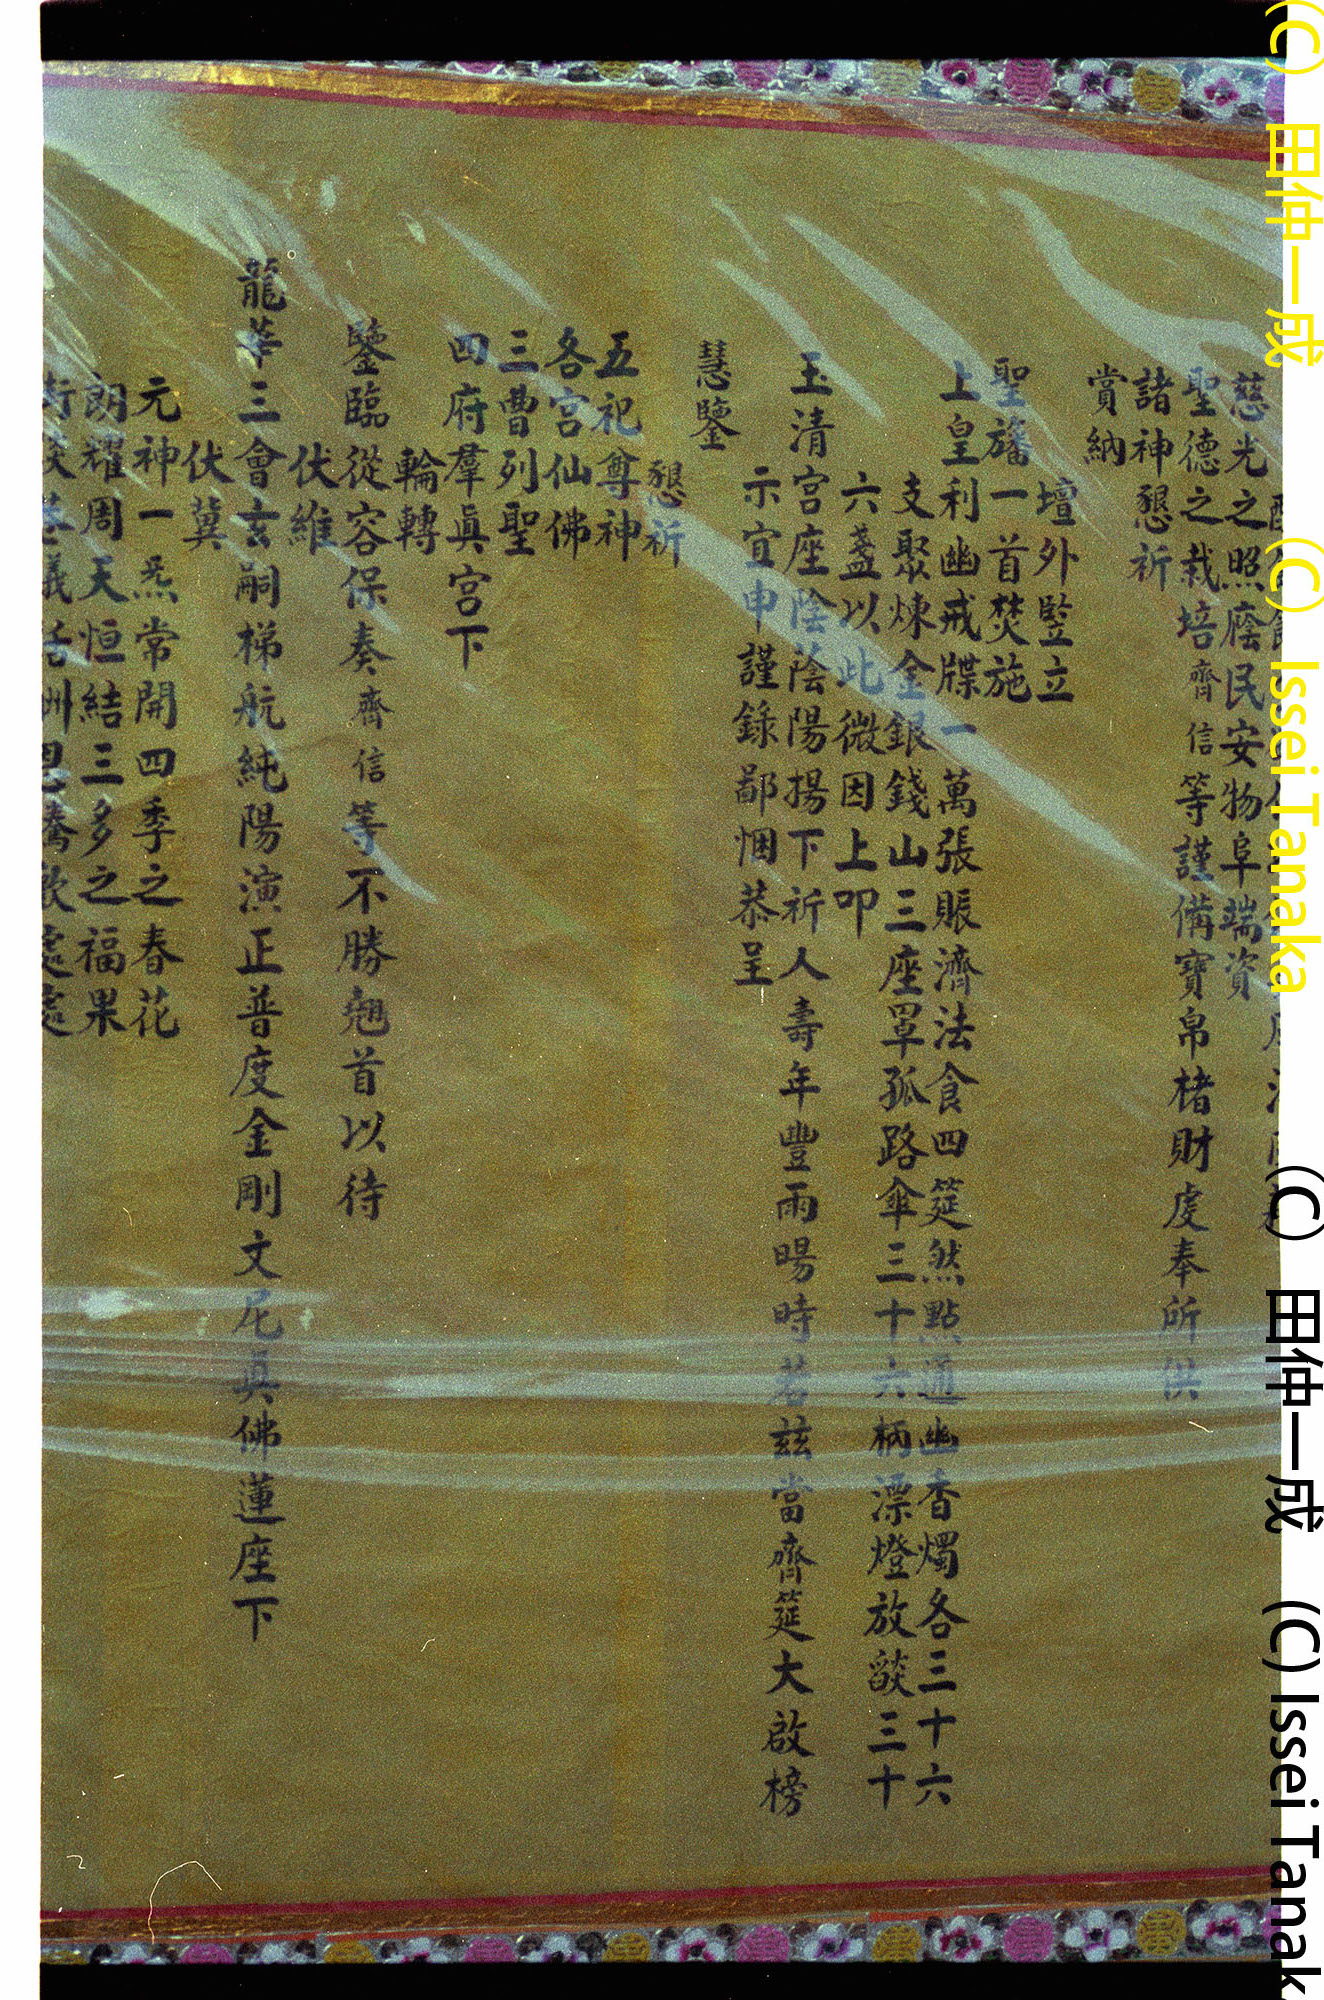 慈光之照廕民安物阜端資
聖德之栽培齊信等謹備寶帛楮財虔奉所供
諸神懇祈
賞納
壇外豎立
聖旛一首焚施
上皇利幽戒牒一萬張賑濟法食四筵然點通幽香燭各三十六
支聚煉金銀錢山三座罩孤路傘三十六柄漂燈放燄三十
六盞以此微因上叩
玉清宮座陰陰陽揚下祈人壽年豐雨暘時若茲當齊筵大啟榜
示宜申謹錄鄙悃恭呈
慧鑒
懇祈
五祀尊神
各宮仙佛
三曹列聖
四府羣眞宮下
輪轉
鑒臨從容保奏齊信等不勝翹首以待
伏維
龍華三會玄嗣梯航純陽演正普度金剛文尼眞佛蓮座下
伏冀
元神一炁常開四季之春花
朗耀周天恒結三多之福果
(C) 田仲一成 (C) Issei Tanaka (C) 田仲一成 (C) Issei Tanak